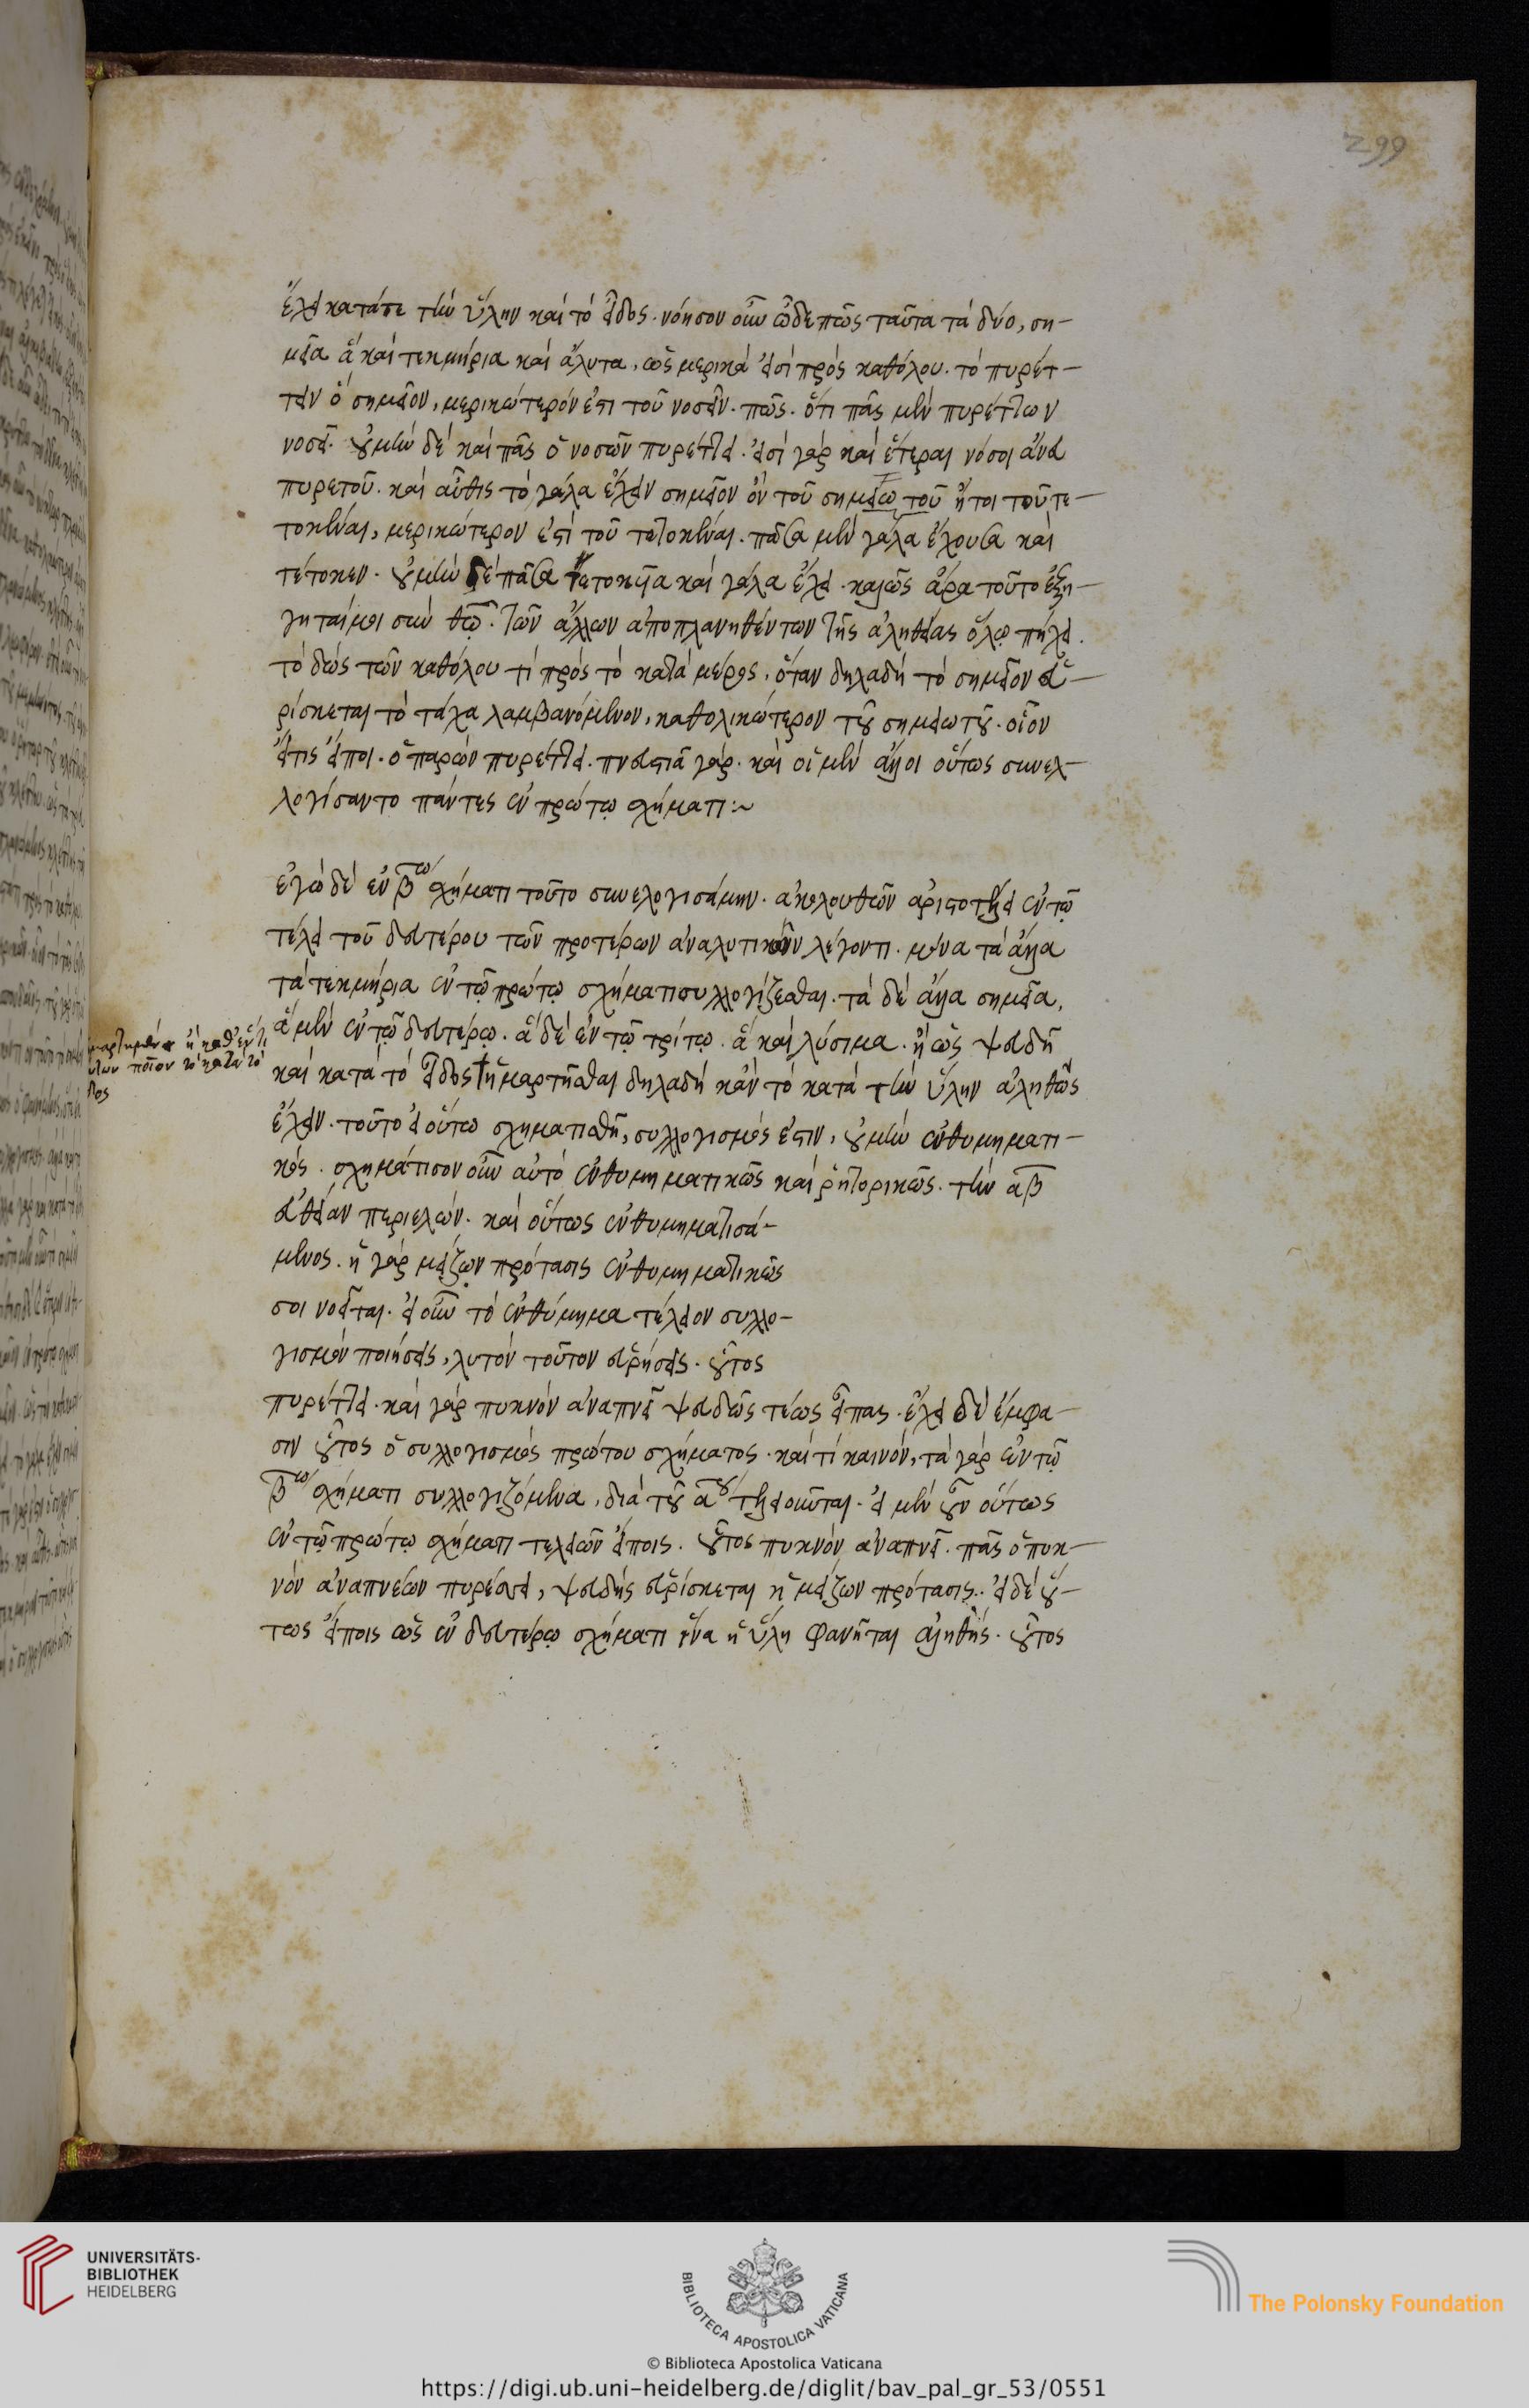 299
ἔχει κατά τε τὴν ὕλην καὶ τὸ εἶδος. νόησον οὖν ὧδε πῶς ταῦτα τὰ δύο, ση-
μεῖα ἃ καὶ τεκμήρια καὶ ἄλυτα, ὡς μερικά εἰσι πρὸς καθόλου. τὸ πυρέτ-
τειν ὃ σημεῖον, μερικώτερόν ἐστι τοῦ νοσεῖν. πῶς. ὅτι πᾶς μὲν πυρέττων
νοσεῖ. οὐ μὴν δὲ καὶ πᾶς ὁ νοσῶν πυρέττει. εἰσὶ γὰρ καὶ ἕτεραι νόσοι ἄνευ
πυρετοῦ. καὶ αὖθις τὸ γάλα ἔχειν σημεῖον ὂν τοῦ σημειωτοῦ ἤτοι τοῦ τε-
τοκέναι, μερικώτερον ἐστὶ τοῦ τετοκέναι. πᾶσα μὲν γάλα ἔχουσα καὶ
τέτοκεν. οὐ μὴν δὲ πᾶσα τετοκυῖα καὶ γάλα ἔχει. καλῶς ἄρα τοῦτο ἐξή-
γηταί μοι σὺν θεῷ. τῶν ἄλλων ἀποπλανηθέντων τῆς ἀληθείας ὅλῳ πήχει.
τὸ δὲ ὡς τῶν καθόλου τὶ πρὸς τὸ κατὰ μέρος, ὅταν δηλαδὴ τὸ σημεῖον εὑ-
ρίσκεται τὸ τάχα λαμβανόμενον, καθολικώτερον τοῦ σημειωτοῦ. οἷον
εἴ τις εἴποι. ὁ παρὼν πυρέττει. πνευστιᾷ γάρ. καὶ οἱ μὲν ἄλλοι οὕτως συνελ-
λογίσαντο πάντες ἐν πρώτῳ σχήματι:~
ἐγὼ δὲ ἐν βῳ σχήματι τοῦτο συνελογισάμην. ἀκολουθῶν ἀριστοτέλει ἐν τῷ
τέλει τοῦ δευτέρου τῶν προτέρων ἀναλυτικῶν λέγοντι. μόνα τὰ ἄλυτα
τὰ τεκμήρια ἐν τῷ πρώτῳ σχήματι συλλογίζεσθαι. τὰ δὲ ἄλλα σημεῖα,
ἃ μὲν ἐν τῷ δευτέρῳ. ἃ δὲ ἐν τῷ τρίτῳ. ἃ καὶ λύσιμα. ἢ ὡς ψευδῆ
καὶ κατὰ τὸ εἶδος ἡμαρτῆσθαι δηλαδὴ κἂν τὸ κατὰ τὴν ὕλην ἀληθῶς
ἔχειν. τοῦτο εἰ οὕτω σχηματισθῇ, συλλογισμός ἐστιν, οὐ μὴν ἐνθυμηματι-
κός. σχημάτισον οὖν αὐτὸ ἐνθυμηματικῶς καὶ ῥητορικῶς. τὴν αβ
εὐθεῖαν περιελών. καὶ οὕτως ἐνθυμηματισά-
μενος. ἡ γὰρ μείζων πρότασις ἐνθυμηματικῶς
σοι νοεῖται. εἰ οὖν τὸ ἐνθύμημα τέλειον συλλο-
γισμὸν ποιήσεις, λυτὸν τοῦτον εὑρήσεις. οὗτος
πυρέττει. καὶ γὰρ πυκνὸν ἀναπνεῖ ψευδῶς τέως εἶπας. ἔχει δὲ ἔμφα-
σιν οὗτος ὁ συλλογισμὸς πρώτου σχήματος. καὶ τί καινόν, τὰ γὰρ ἐν τῷ
βῳ σχήματι συλλογιζόμενα, διὰ τοῦ αου τελειοῦνται. εἰ μὲν οὖν οὕτως
ἐν τῷ πρώτῳ σχήματι τελειῶν εἴποις. οὗτος πυκνὸν ἀναπνεῖ. πᾶς ὁ πυκ-
νὸν ἀναπνέων πυρέσσει, ψευδὴς εὑρίσκεται ἡ μείζων πρότασις. εἰ δὲ οὕ-
τως εἴποις ὡς ἐν δευτέρῳ σχήματι ἵνα ἡ ὕλη φανῆται ἀληθής. οὗτος
UNIVERSITÄTS-
BIBLIOTHEK
HEIDELBERG
BIBLIOTECA APOSTOLICA VATICANA
The Polonsky Foundation
© Biblioteca Apostolica Vaticana
https://digi.ub.uni-heidelberg.de/diglit/bav_pal_gr_53/0551